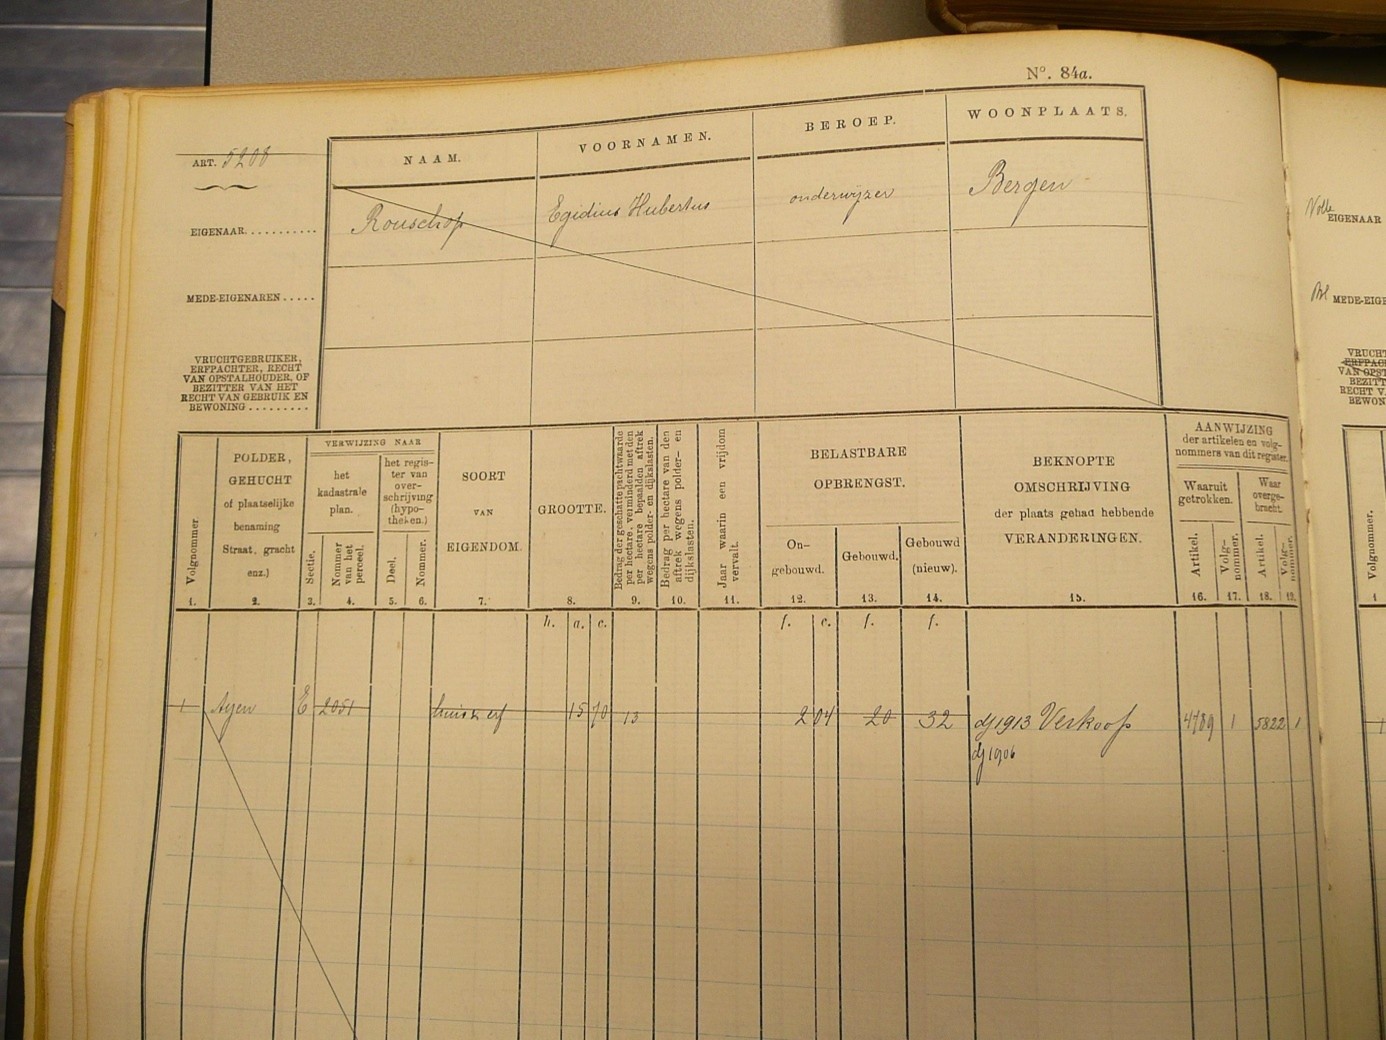 Nº. 84a.
ART. 5208
NAAM.
VOORNAMEN.
BEROEP.
WOONPLAATS.
EIGENAAR...........
Rouschop
Egidius Hubertus
onderwijzer
Bergen
MEDE-EIGENAREN.....
VRUCHTGEBRUIKER,
ERFPACHTER, RECHT
VAN OPSTALHOUDER, OF
BEZITTER VAN HET
RECHT VAN GEBRUIK EN
BEWONING.........
Volgnommer.
POLDER,
GEHUCHT
of plaatselijke
benaming
Straat, gracht
enz.)
VERWIJZING NAAR
het
kadastrale
plan.
Sectie.
Nommer
van het
perceel.
het regis-
ter van
over-
schrijving
(hypo-
theken.)
Deel.
Nommer.
SOORT
VAN
EIGENDOM.
GROOTTE.
Bedrag der geschatte pachtwaarde
per hectare, verminderd met den
per hectare bepaalden aftrek
wegens polder- en dijkslasten.
Bedrag per hectare van den
aftrek wegens polder- en
dijkslasten.
Jaar waarin een vrijdom
vervalt.
BELASTBARE
OPBRENGST.
On-
gebouwd.
Gebouwd.
Gebouwd
(nieuw).
BEKNOPTE
OMSCHRIJVING
der plaats gehad hebbende
VERANDERINGEN.
AANWIJZING
der artikelen en volg-
nommers van dit register.
Waaruit
getrokken.
Waar
overge-
bracht.
Artikel.
Volg-
nommer.
Artikel.
Volg-
nommer.
1. 2. 3. 4. 5. 6. 7. 8. 9. 10. 11. 12. 13. 14. 15. 16. 17. 18. 19.
h. a. c. f. c. f. f.
1 Ayen E 2051 huis & erf 15 70 13 2 04 20 32 dj 1913 Verkoop 4789 1 5822 1
dj 1906
Volle
EIGENAAR
MEDE-EIGE
VRUCHT
ERFPAC
VAN OPST
BEZITT
RECHT V
BEWON
Volgnommer.
1
1